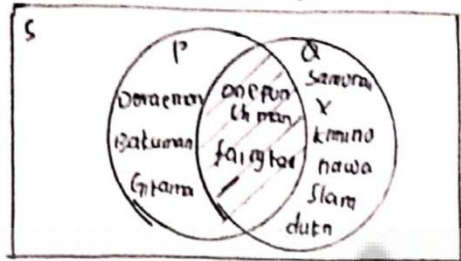 S
P
Q
Doraemon
Bakuman
Gitama
onepun
ch man
fairytail
Samurai
X
kimino
nawa
Slam